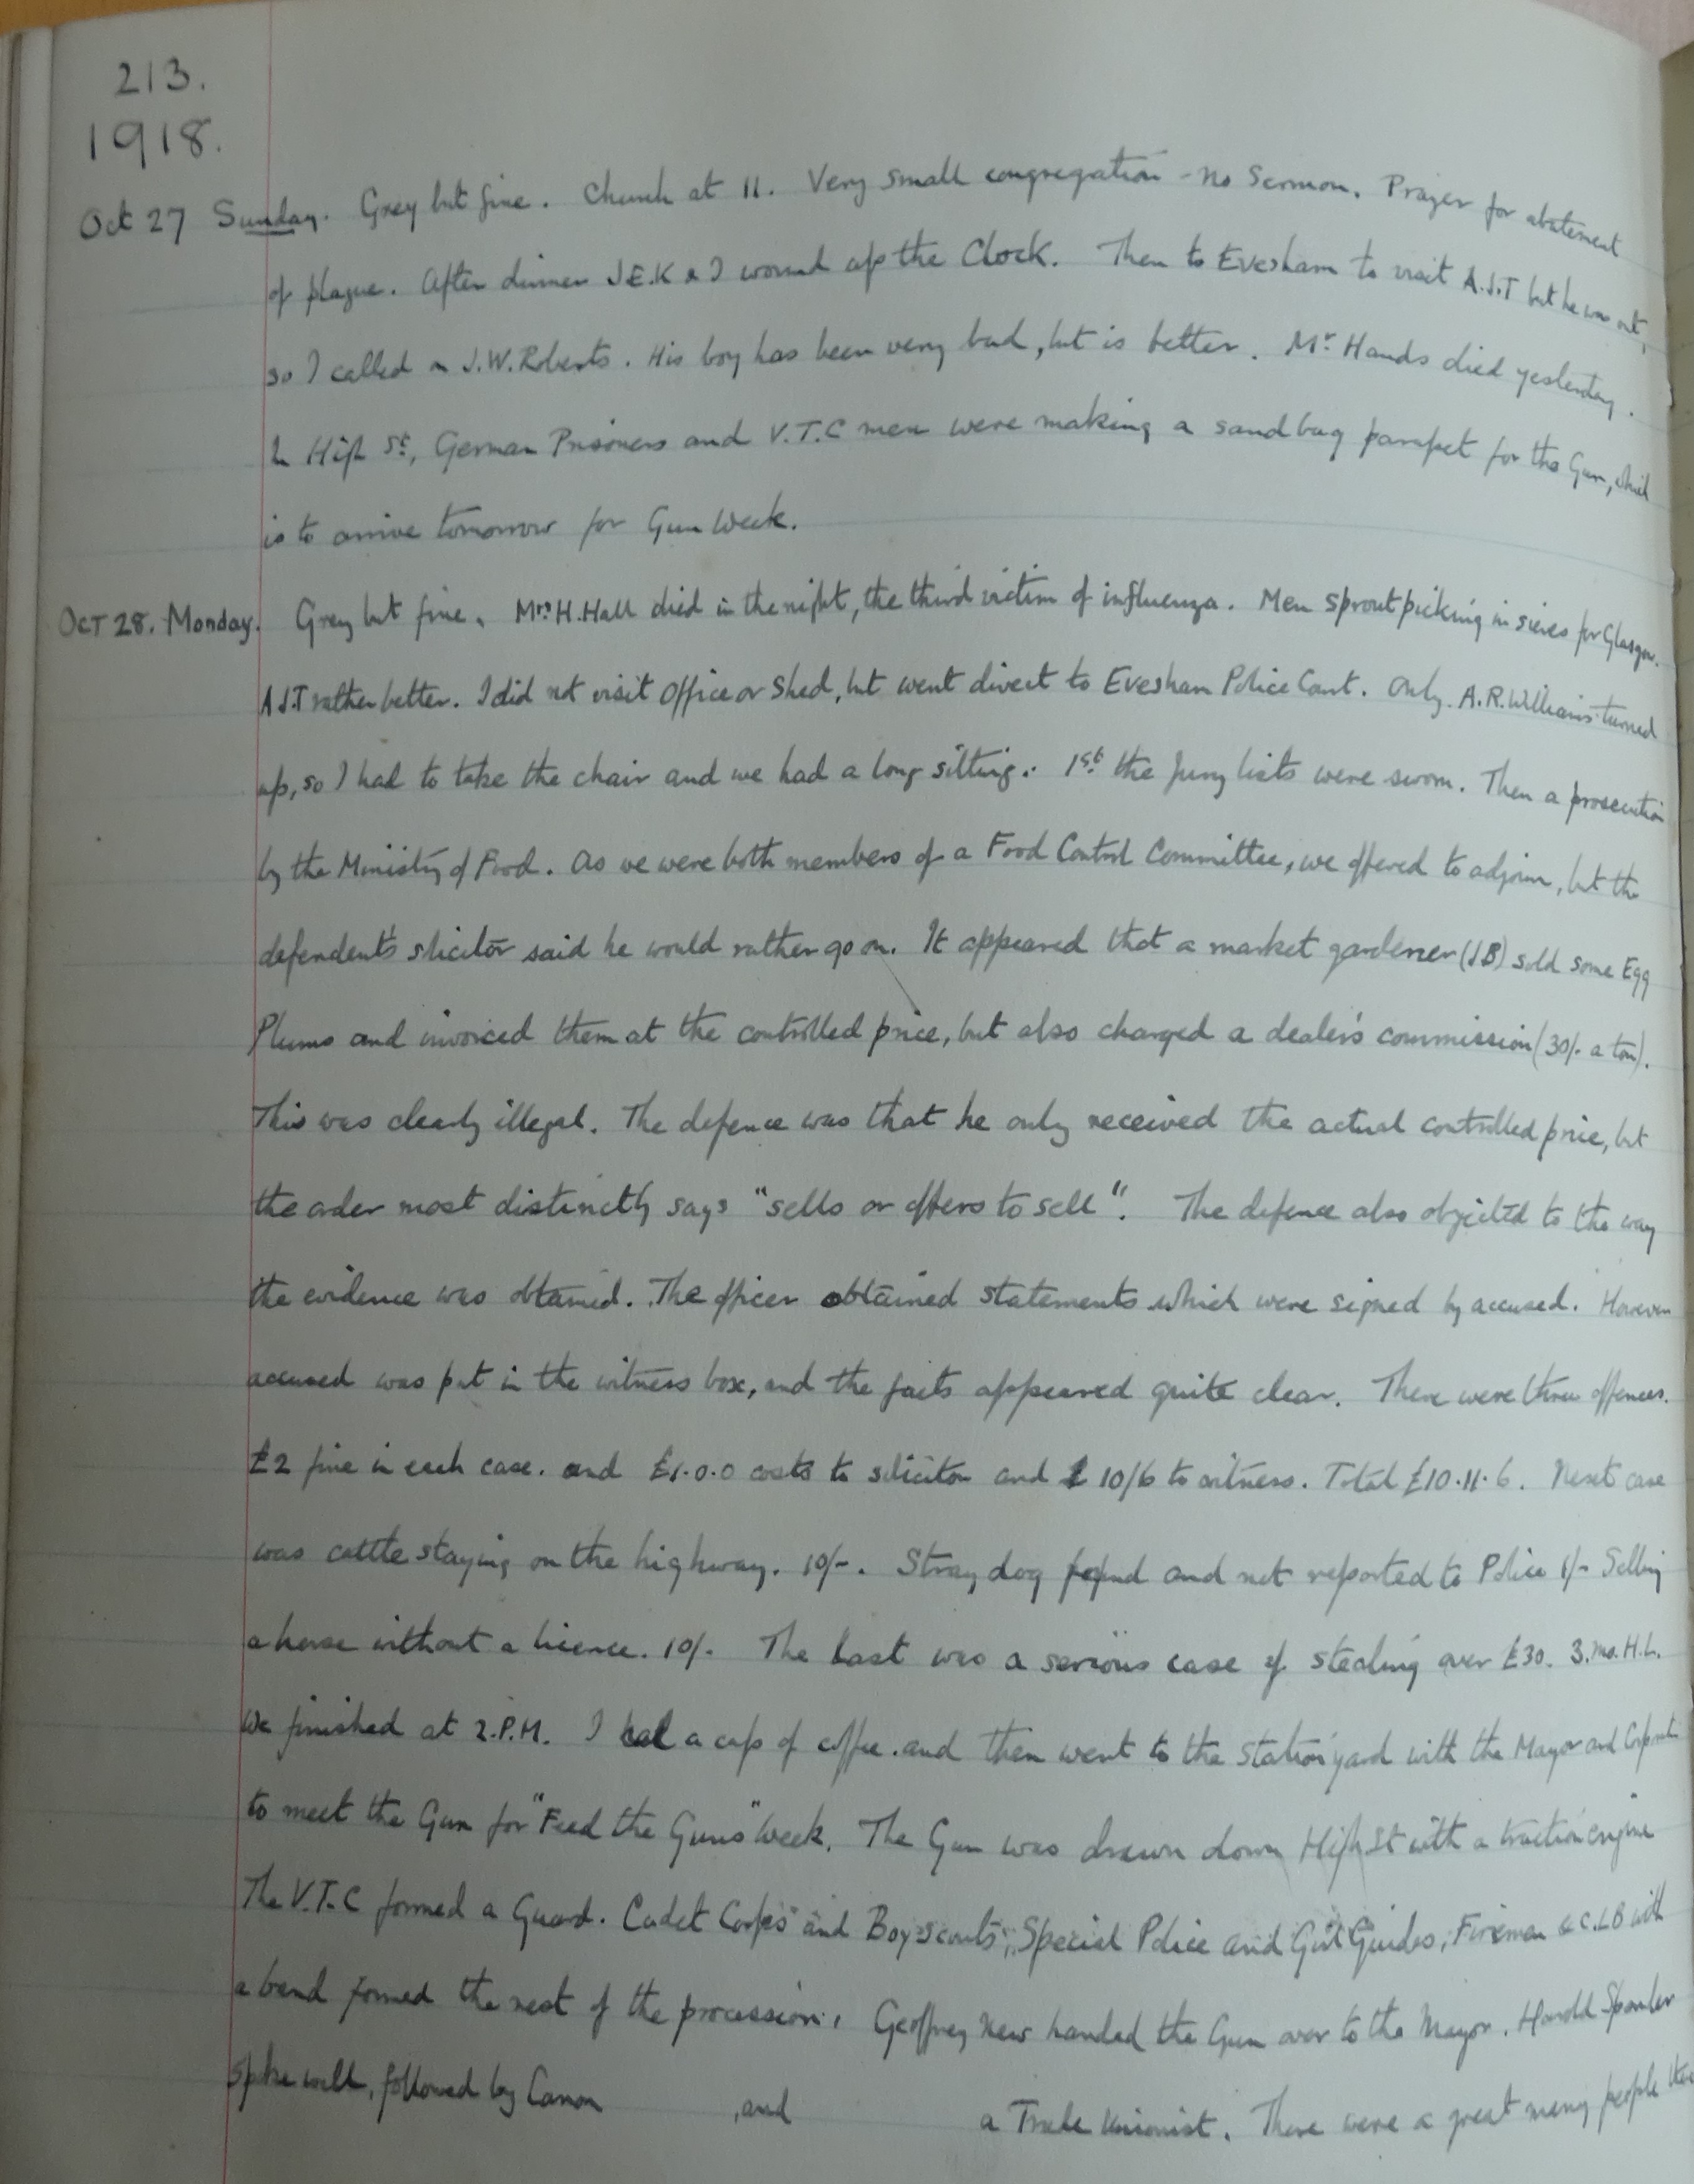 213.
1918.
Oct 27 Sunday. Grey but fine. Church at 11. Very small congregation - no Sermon. Prayer for abatement
of plague. After dinner J.E.K & I wound up the Clock. Then to Evesham to visit A.J.T but he was out,
so I called on J.W. Roberts. His boy has been very bad, but is better. Mr. Hands died yesterday.
In High St, German Prisoners and V.T.C men were making a sandbag parapet for the Gun, which
is to arrive tomorrow for Gun Week.
OCT 28. Monday. Grey but fine. Mrs. H. Hall died in the night, the third victim of influenza. Men sprout picking in sieves for Glasgow.
A.J.T rather better. I did not visit Office or Shed, but went direct to Evesham Police Court. Only A.R. Williams turned
up, so I had to take the chair and we had a long sitting. 1st the Jury lists were sworn. Then a prosecution
by the Ministry of Food. As we were both members of a Food Control Committee, we offered to adjourn, but the
defendent's solicitor said he would rather go on. It appeared that a market gardener (J B) sold some Egg
Plums and invoiced them at the controlled price, but also charged a dealer's commission (30/- a ton).
This was clearly illegal. The defence was that he only received the actual controlled price, but
the order most distinctly says "sells or offers to sell". The defence also objected to the way
the evidence was obtained. The officer obtained statements which were signed by accused. However
accused was put in the witness box, and the facts appeared quite clear. There were three offences.
£2 fine in each case. and £1.0.0 costs to solicitor and 10/6 to witness. Total £10.11.6. Next case
was cattle staying on the highway. 10/-. Stray dog found and not reported to Police 1/- Selling
a horse without a licence. 10/- The last was a serious case of stealing over £30. 3.mo.H.L.
We finished at 2.P.M. I had a cup of coffee. and then went to the station yard with the Mayor and Corporation
to meet the Gun for "Feed the Guns" Week. The Gun was drawn down High St with a traction engine
The V.T.C formed a Guard. Cadet Corps and Boy scouts, Special Police and Girl Guides, Fireman & C.L B with
a band formed the rest of the procession. Geoffrey New handed the Gun over to the Mayor. Harold
spoke well, followed by Canon , and a Trade Unionist. There were a great many people there